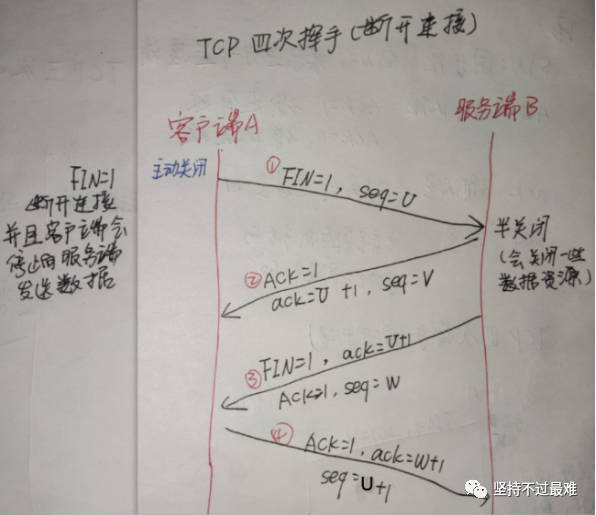 TCP 四次挥手(断开连接)
客户端A
服务端B
主动关闭
FIN=1
断开连接
并且客户端会
停止向服务端
发送数据
① FIN=1, seq=U
半关闭
(会关闭一些
数据资源)
② ACK=1
ack=U+1, seq=V
③ FIN=1, ack=U+1
ACK=1, seq=W
④ ACK=1, ack=W+1
seq=U+1
坚持不过最难